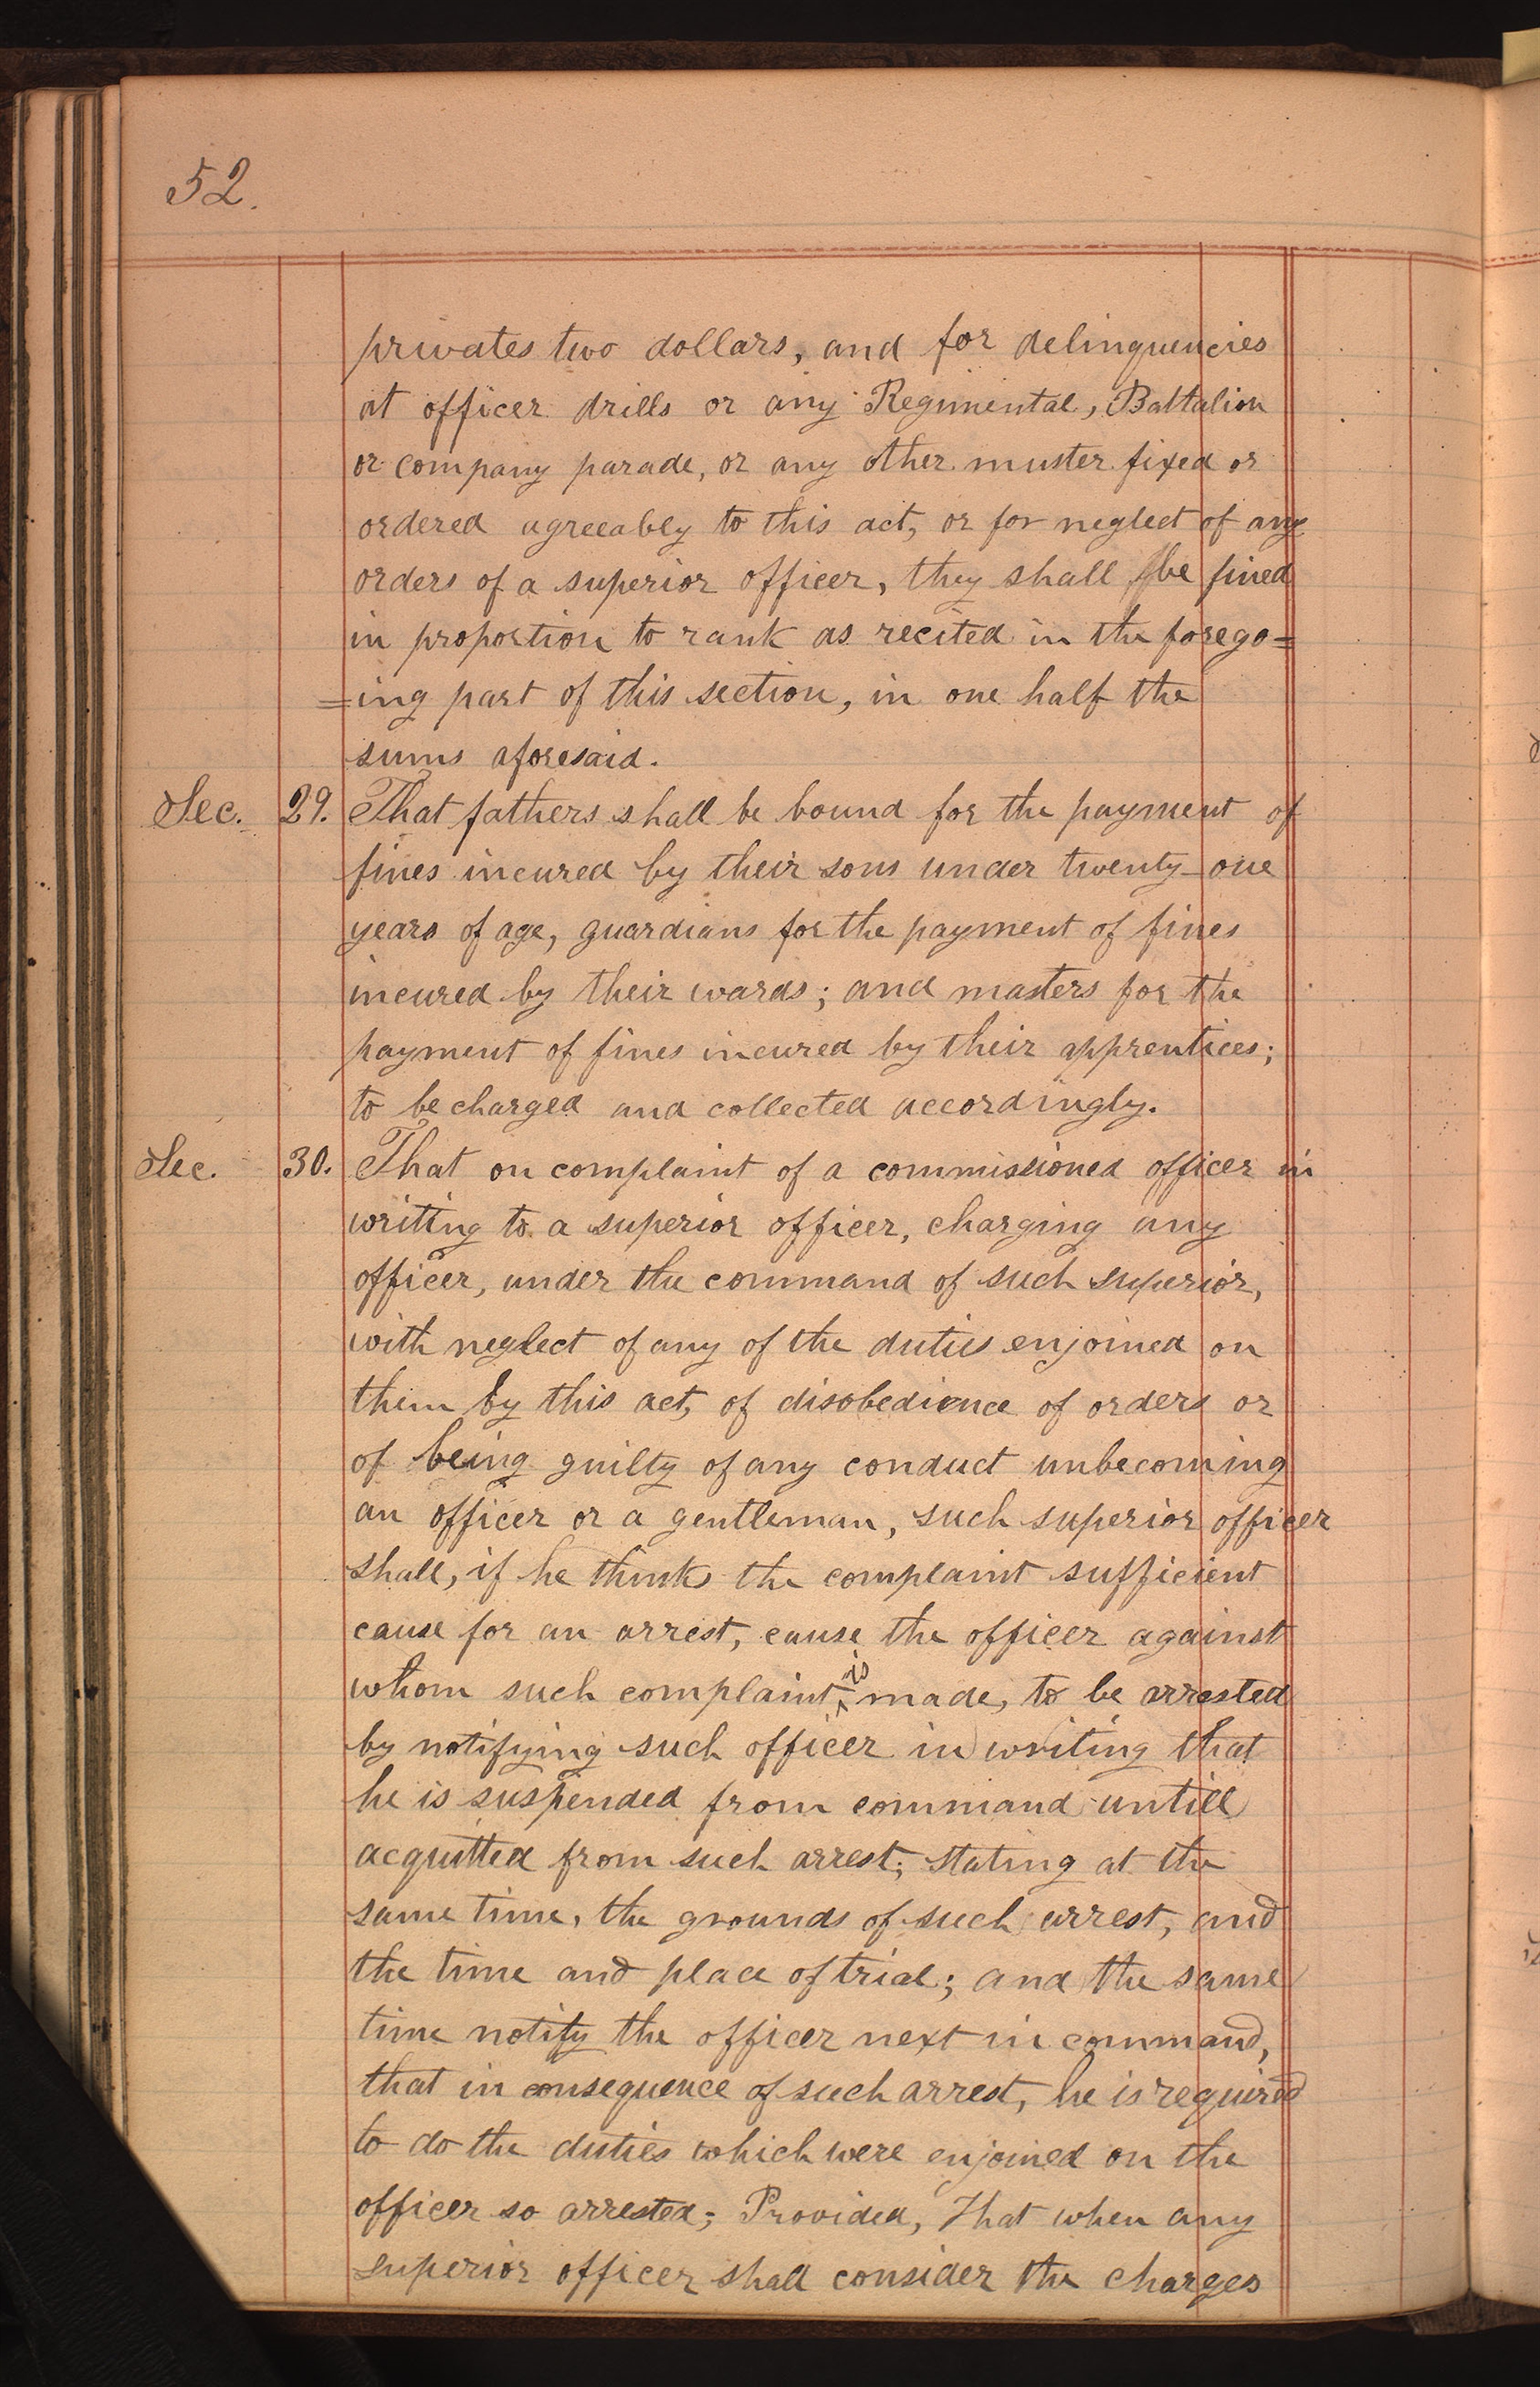 52.
privates two dollars, and for delinquencies
at officer drills or any Regimental, Battalion
or company parade, or any other muster fixed or
ordered agreeably to this act, or for neglect of any
orders of a superior officer, they shall be fined
in proportion to rank as recited in the forego=
=ing part of this section, in one half the
sums aforesaid.
Sec. 29. That fathers shall be bound for the payment of
fines incured by their sons under twenty-one
years of age, guardians for the payment of fines
incured by their wards; and masters for the
payment of fines incured by their apprentices;
to be charged and collected accordingly.
Sec. 30. That on complaint of a commissioned officer in
writing to a superior officer, charging any
officer, under the command of such superior,
with neglect of any of the duties enjoined on
them by this act, of disobedience of orders or
of being guilty of any conduct unbecoming
an officer or a gentleman, such superior officer
shall, if he thinks the complaint sufficient
cause for an arrest, cause the officer against
whom such complaint is made, to be arrested
by notifying such officer in writing that
he is suspended from command untill
acquitted from such arrest; stating at the
same time, the grounds of such arrest, and
the time and place of trial; and the same
time notify the officer next in command,
that in consequence of such arrest, he is required
to do the duties which were enjoined on the
officer so arrested; Provided, That when any
superior officer shall consider the charges